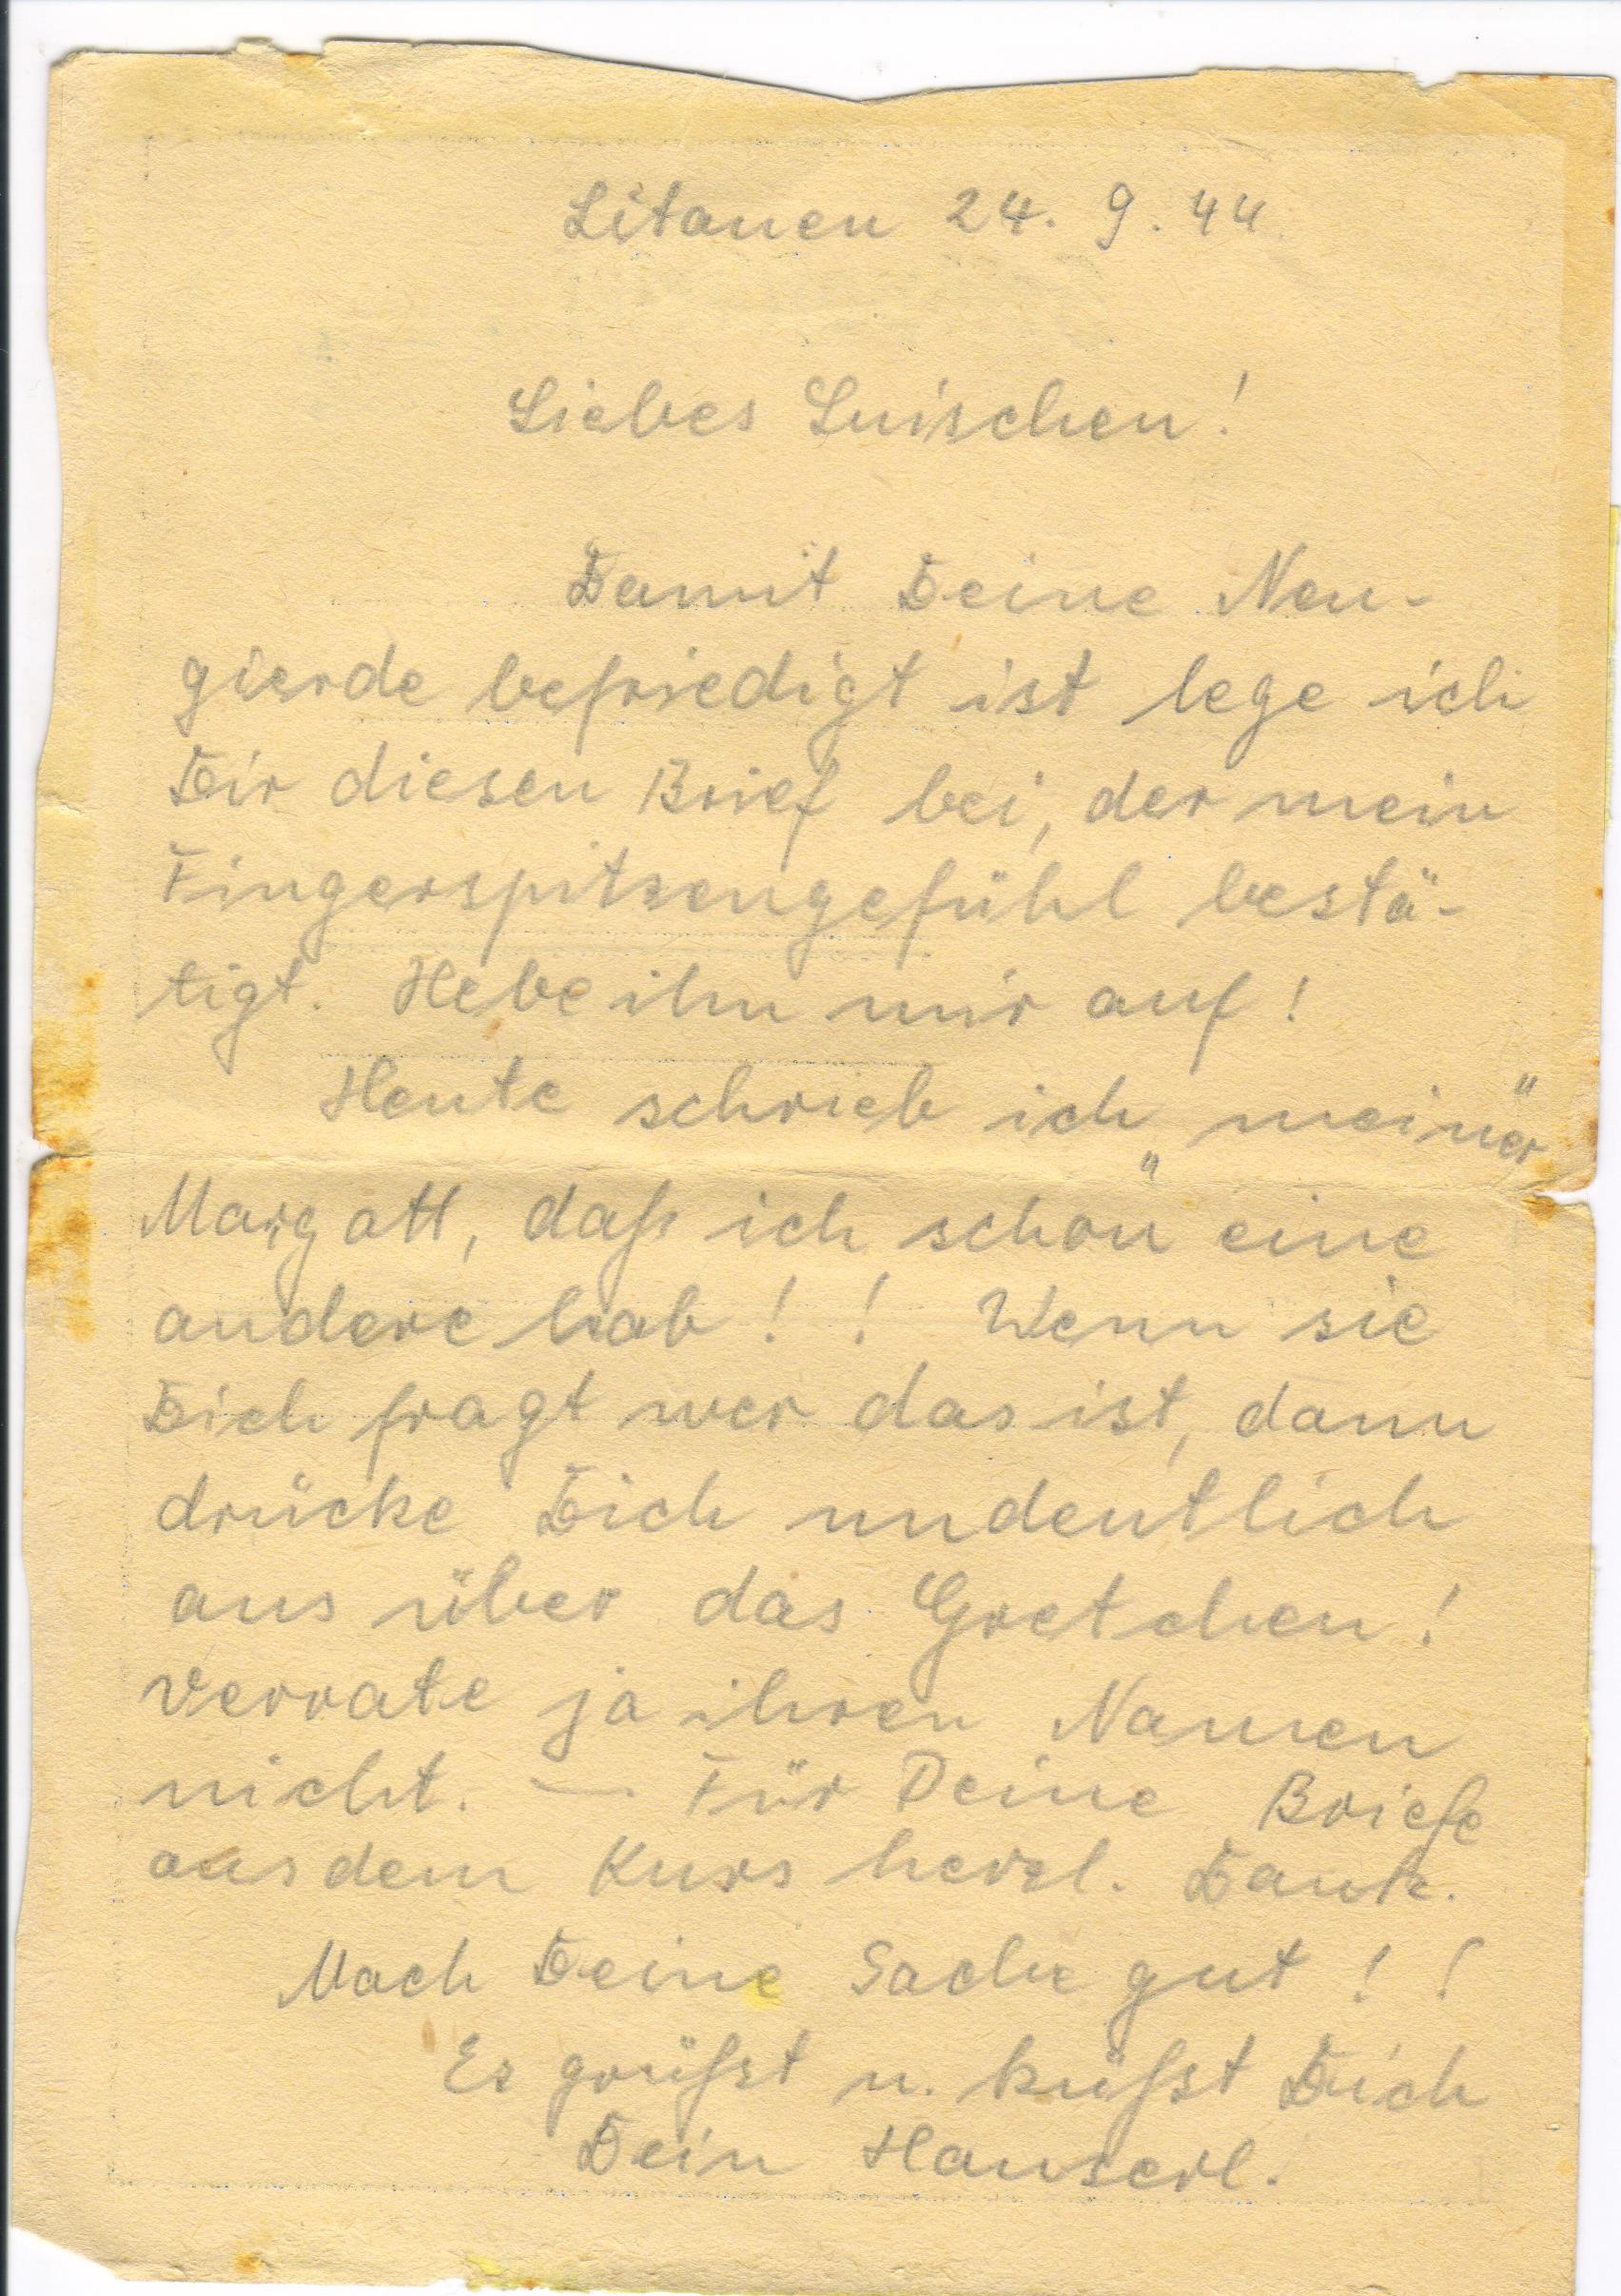 Litauen 24. 9. 44.
Liebes Luischen!
Damit Deine Neu-
gierde befriedigt ist lege ich
Dir diesen Brief bei, der mein
Fingerspitzengefühl bestä-
tigt. Hebe ihn mir auf!
Heute schrieb ich „meiner"
Margott, daß ich schon eine
andere hab! ! Wenn sie
Dich fragt wer das ist, dann
drücke Dich undeutlich
aus über das Gretchen!
Verrate ja ihren Namen
nicht. — Für Deine Briefe
aus dem Kurs herzl. Dank.
Mach Deine Sache gut! !
Es grüßt u. küßt Dich
Dein Hanserl.